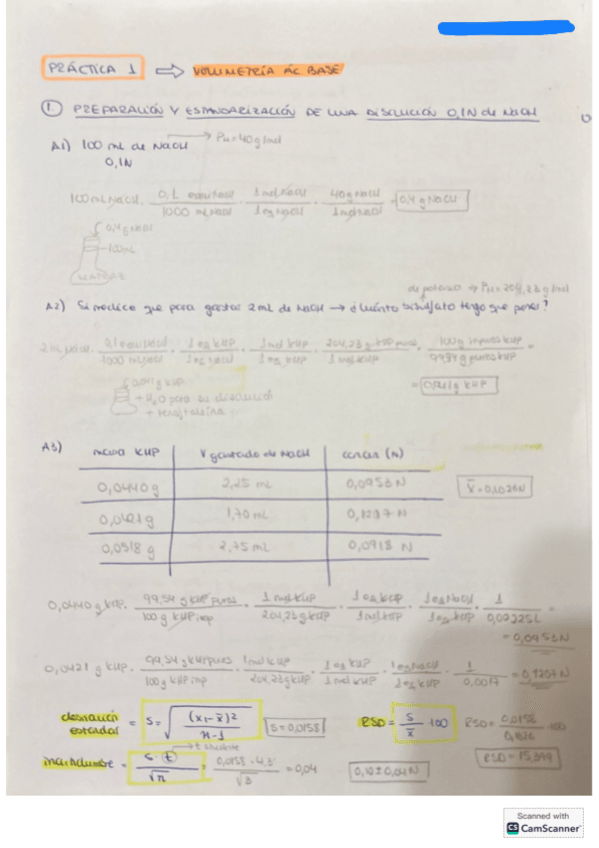 PRÁCTICA 1 ⇒ VOLUMETRÍA ÁC BASE
1. PREPARACIÓN Y ESTANDARIZACIÓN DE UNA DISOLUCIÓN 0,1N de NaOH
A1) 100 mL de NaOH → Pm=40g/mol
0,1N
100 mL NaOH · 0,1 equiv NaOH / 1000 mL NaOH · 1 mol NaOH / 1 eq NaOH · 40g NaOH / 1 mol NaOH = 0,4 g NaOH
0,4g NaOH
100mL
de potasio → Pm=204,23 g/mol
A2) Si me dice que para gastar 2mL de NaOH → ¿Cuánto tengo que pesar?
2 mL NaOH · 0,1 equiv NaOH / 1000 mL NaOH · 1 eq KHP / 1 eq NaOH · 1 mol KHP / 1 eq KHP · 204,23 g KHP puros / 1 mol KHP · 100g impuros KHP / g puros KHP =
= 0,041g KHP
0,041g KHP
+ H₂O para su disolución
+ fenolftaleína
A3) masa KHP V gastado de NaOH concen (N)
0,0440g 2,25 mL 0,0953N
0,0421g 1,70 mL N
0,0518 g 2,75 mL 0,0918 N
0,0440 g KHP · g KHP puros / 100 g KHP imp · 1 mol KHP / 204,23 g KHP · 1 eq KHP / 1 mol KHP · 1 eq NaOH / 1 eq KHP · 1 / 0,00225L =
= 0,0953N
0,0421 g KHP · g KHP puros / 100g KHP imp · 1 mol KHP / 204,23g KHP · 1 eq KHP / 1 mol KHP · 1 eq NaOH / 1 eq KHP · 1 / 0,0017 = N
desviación estándar = S = √((x₁-x̄)² / n-1) S=0,0158 RSD = s / x̄ · 100
t student
incertidumbre = s · (t) / √n = 0,0158 · 4,3 / √3 = 0,04 0,10±0,04N
Scanned with
CS CamScanner